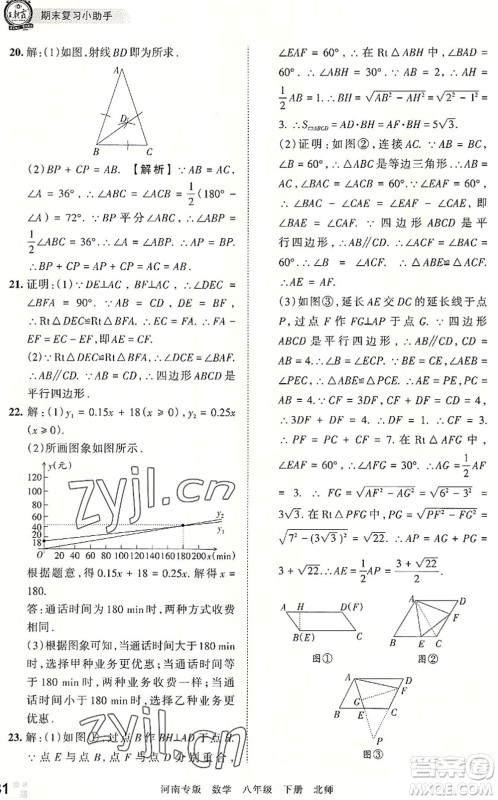 期末复习小助手
20. 解：(1)如图，射线BD即为所求.
A
D
B
C
(2)BP + CP = AB. 【解析】∵AB = AC,
∠A = 36°，∴∠ABC = ∠ACB = 1/2(180° -
∠A) = 72°. ∵BP平分∠ABC，∴∠ABP =
1/2∠ABC = 36° = ∠A. ∴AP = BP. ∴BP +
CP = AP + CP = AC. ∴BP + CP = AB.
21. 证明：(1)∵DE⊥AC，BF⊥AC，∴∠DEC =
∠BFA = 90°. ∵AB = CD，DE = BF，
∴Rt△DEC≌Rt△BFA. ∴EC = FA. ∴FA -
EF = EC - EF，即AE = CF.
(2)∵Rt△DEC≌Rt△BFA，∴∠C = ∠A.
∴AB∥DC. ∵AB = CD，∴四边形ABCD是
平行四边形.
22. 解：(1)y₁ = 0.15x + 18(x≥0)，y₂ = 0.25x
(x≥0).
(2)所画图象如图所示.
y(元)
120
100
80
60
40
20
18
y₂
y₁
O 20 40 60 80 100 120 140 160 180 200 x(min)
根据题意，得0.15x + 18 = 0.25x，解得x =
180.
答：通话时间为180 min时，两种方式收费
相同.
(3)根据图象可知，当通话时间大于180 min
时，选择甲种业务更优惠；当通话时间等于
180 min时，两种业务收费一样；当通话时
间小于180 min时，选择乙种业务更优惠.
23. 解：(1)如图①，过点A作BH⊥AD于点H.
∵点E与点B重合，点F与点D重合，
∠EAF = 60°，∴∠ABE = ∠EAF = 60°. ∵∠BAH =
60°，∴∠ABH = 30°. ∵AB = 2，∴AH =
1/2AB = 1. ∴BH = √(AB² - AH²) = √(2² - 1²) = √3.
∴S▱ABCD = AD·BH = 5√3.
(2)证明：如图②，连接AC. ∵AB = BC，
∠B = ∠EAF = 60°，∴△ABC是等边三角形.
∴AB = AC，∠BAC = ∠ACB = 60°. ∴∠BAC -
∠EAC = ∠EAF - ∠EAC，即∠BAE = ∠CAF. ∵四边形ABCD是平
行四边形，∴AB∥CD. ∴∠ACF = ∠BAC =
60°. ∴∠ABE = ∠ACF. ∴△ABE≌△ACF.
∴AE = AF.
(3)如图③，延长AE交DC的延长线于点
P，过点F作FG⊥AP于点G. ∵四边形
ABCD是平行四边形，∴AB = CD，AB∥CD.
∴∠B = ∠ECP. ∵BE = CE，∠AEB = ∠PEC，
∴△ABE≌△PCE. ∴AB = PC，AE = PE.
∴PC = CD = CF + DF. ∵CF = 2DF，
∴PC = 3DF. ∴PF = 5DF = 5.
∵∠EAF = 60°，∴∠AFG = 30°. ∴AG = 1/2AF =
3. ∴FG = √(AF² - AG²) = √(6² - 3²) =
3√3. 在Rt△PFG中，PG = √(PF² - FG²) =
√(7² - (3√3)²) = √22. ∴AP = AG + PG =
3 + √22. ∴AE = 1/2AP = (3 + √22)/2.
A H D(F)
B(E) C
图①
A F D
B E C
图②
A D
F
B E C
G
P
图③
zyjl.cn
河南专版 数学 八年级 下册 北师